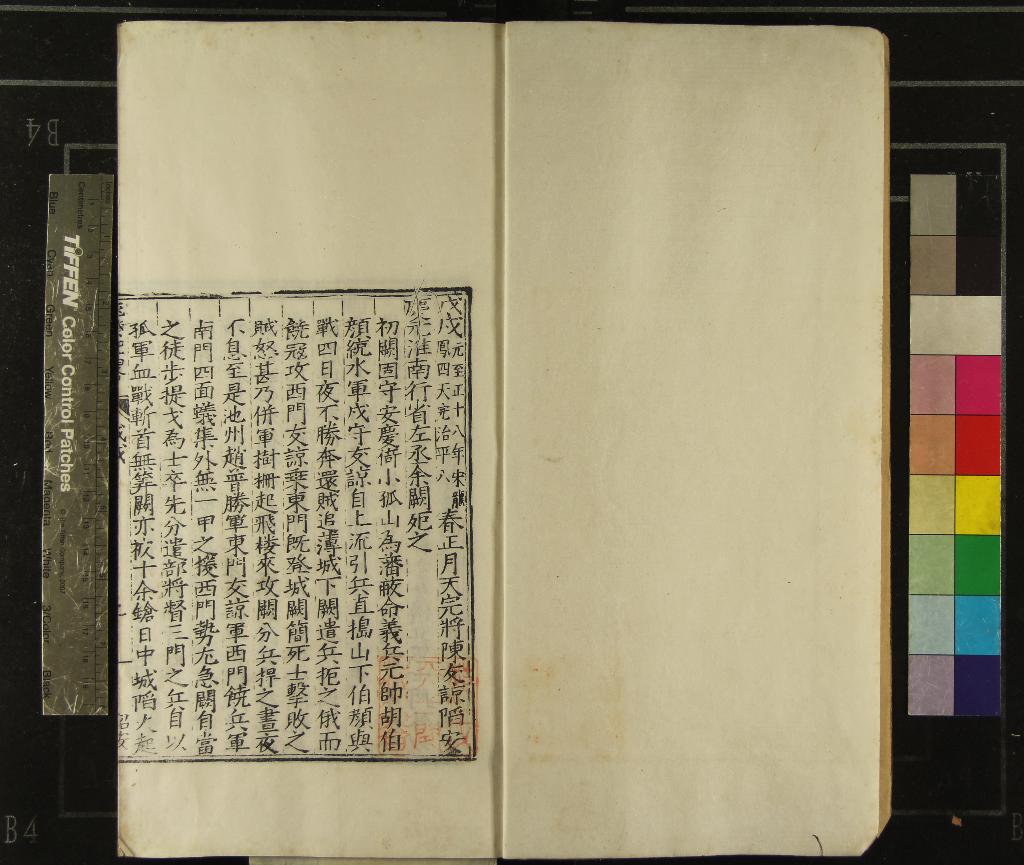 戊戌元至正十八年宋龍鳳四天完治平八春正月天完將陳友諒陷安
慶元淮南行省左丞余闕死之
初闕固守安慶倚小孤山為藩蔽命義兵元帥胡伯
顏統水軍戍守友諒自上流引兵直搗山下伯顏與
戰四日夜不勝奔還賊追薄城下闕遣兵扼之俄而
饒寇攻西門友諒乗東門既登城闕簡死士擊敗之
賊怒甚乃併軍樹柵起飛楼來攻闕分兵捍之晝夜
不息至是池州趙普勝軍東門友諒軍西門饒兵軍
南門四面蟻集外無一甲之援西門勢尤急闕自當
之徒步提戈為士卒先分遣部將督三門之兵自以
孤軍血戰斬首無筭闕亦被十余鎗日中城陷火起
TIFFEN Color Control Patches
Blue
Cyan
Green
Yellow
Red
Magenta
White
3/Color
Black
Centimetres
B4
B4